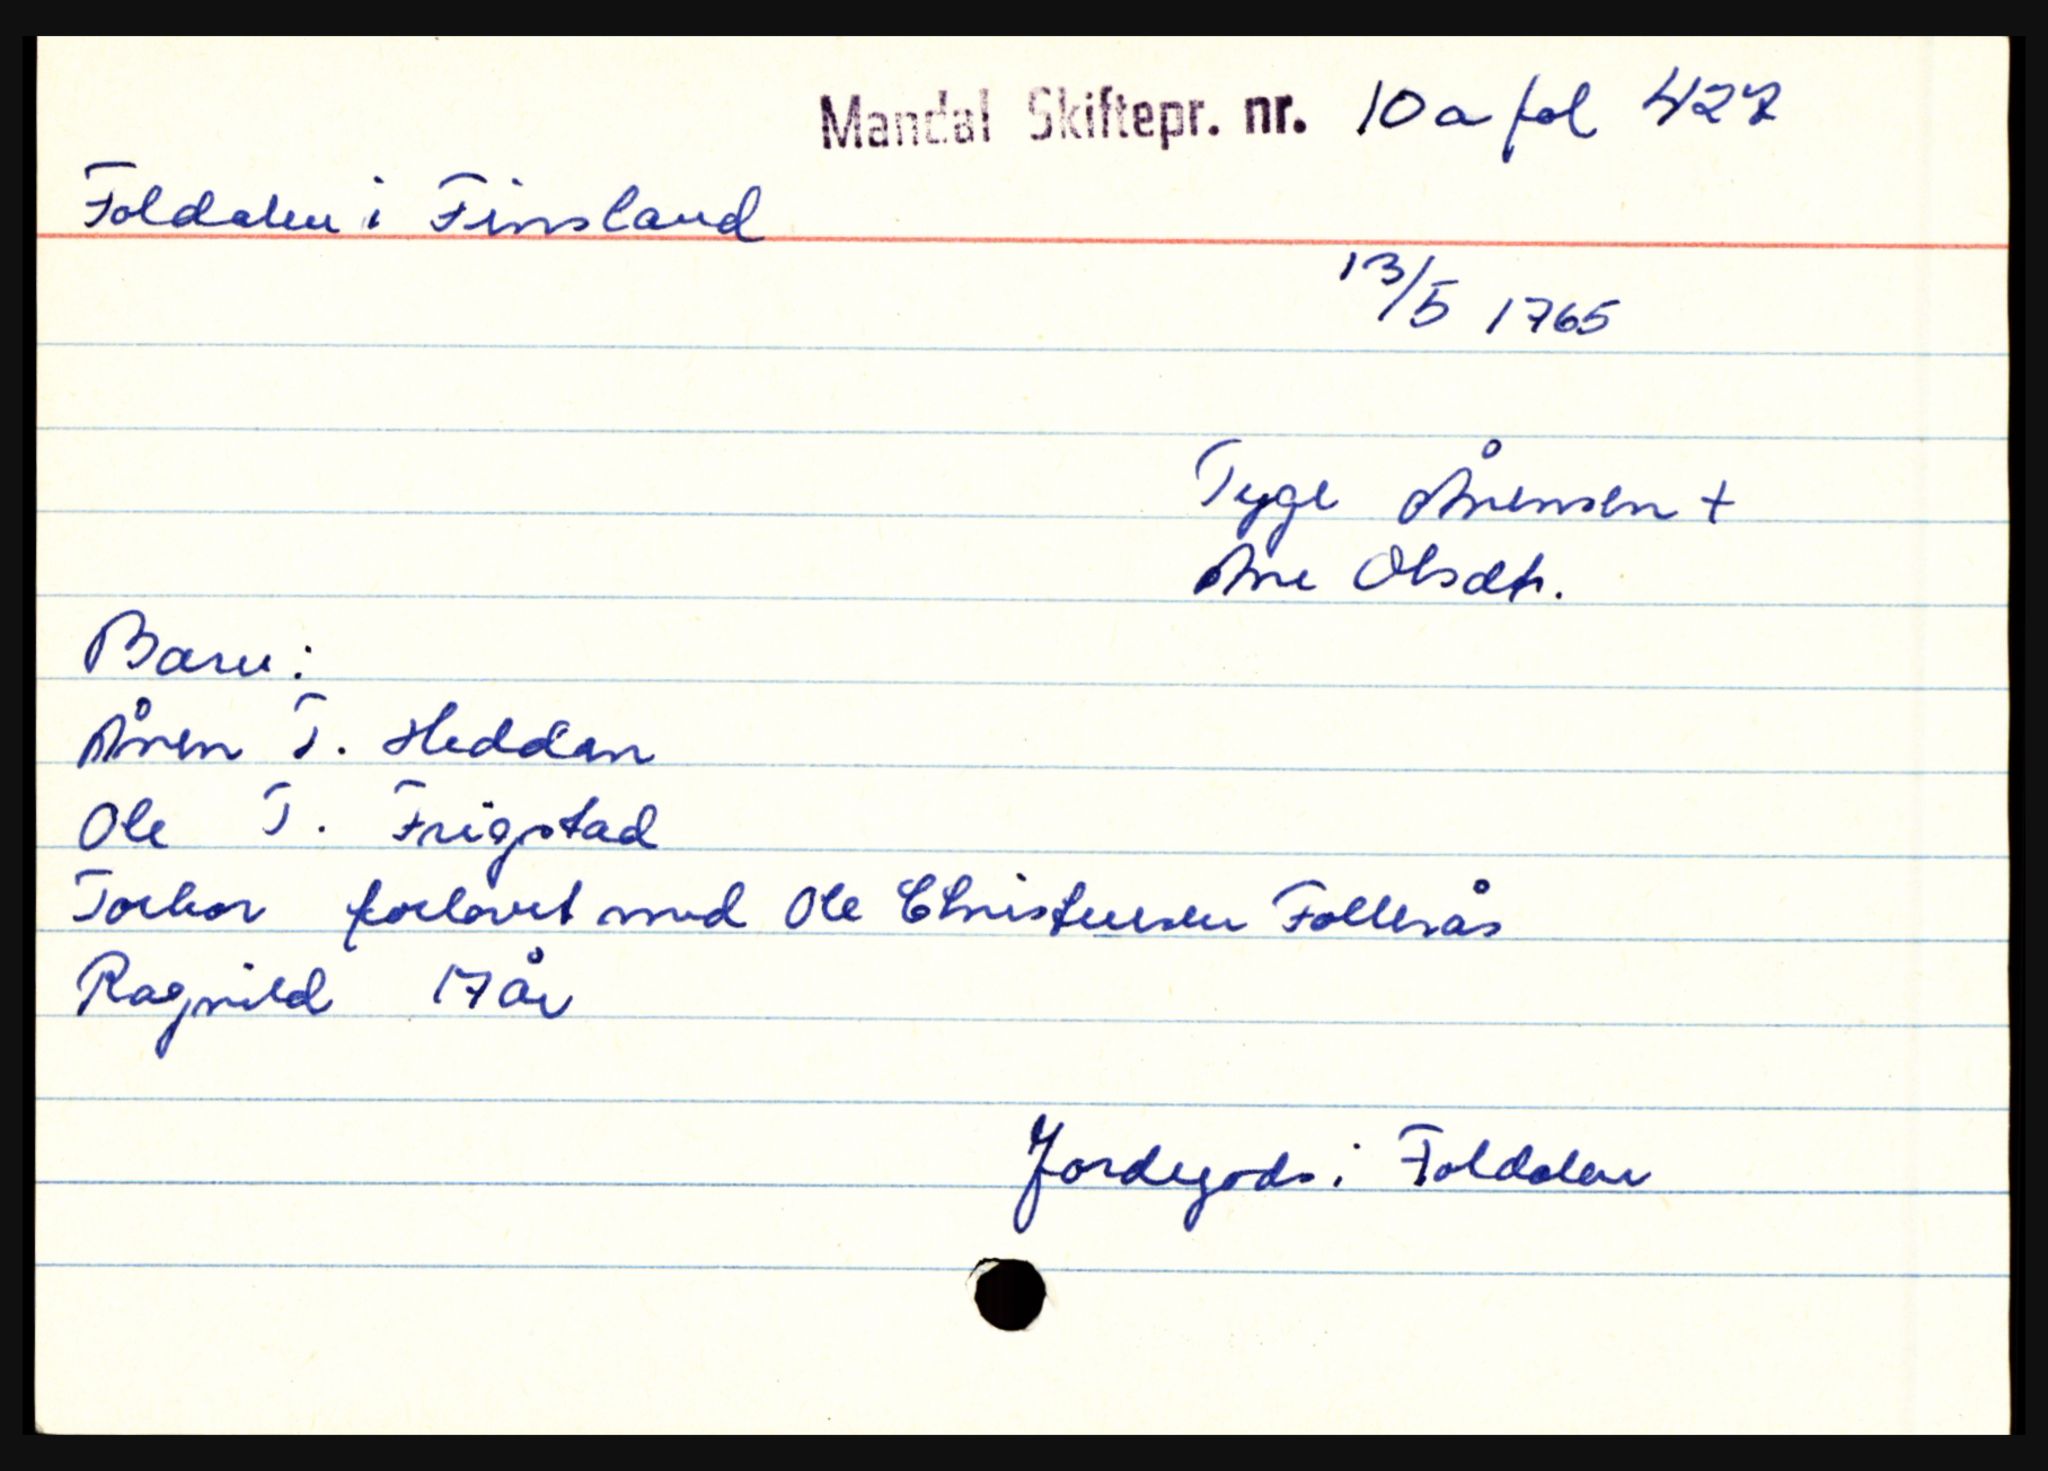 Mandal Skiftepr. nr. 10a fol 427
Foldalen i Finsland
13/5 1765
Tyge Ånensen +
Ane Olsdtr.
Barn:
Ånen T. Heddan
Ole T. Frigstad
Torbor forlovet med Ole Christensen Follesås
Ragnild 17 år
Jordegods i Foldalen